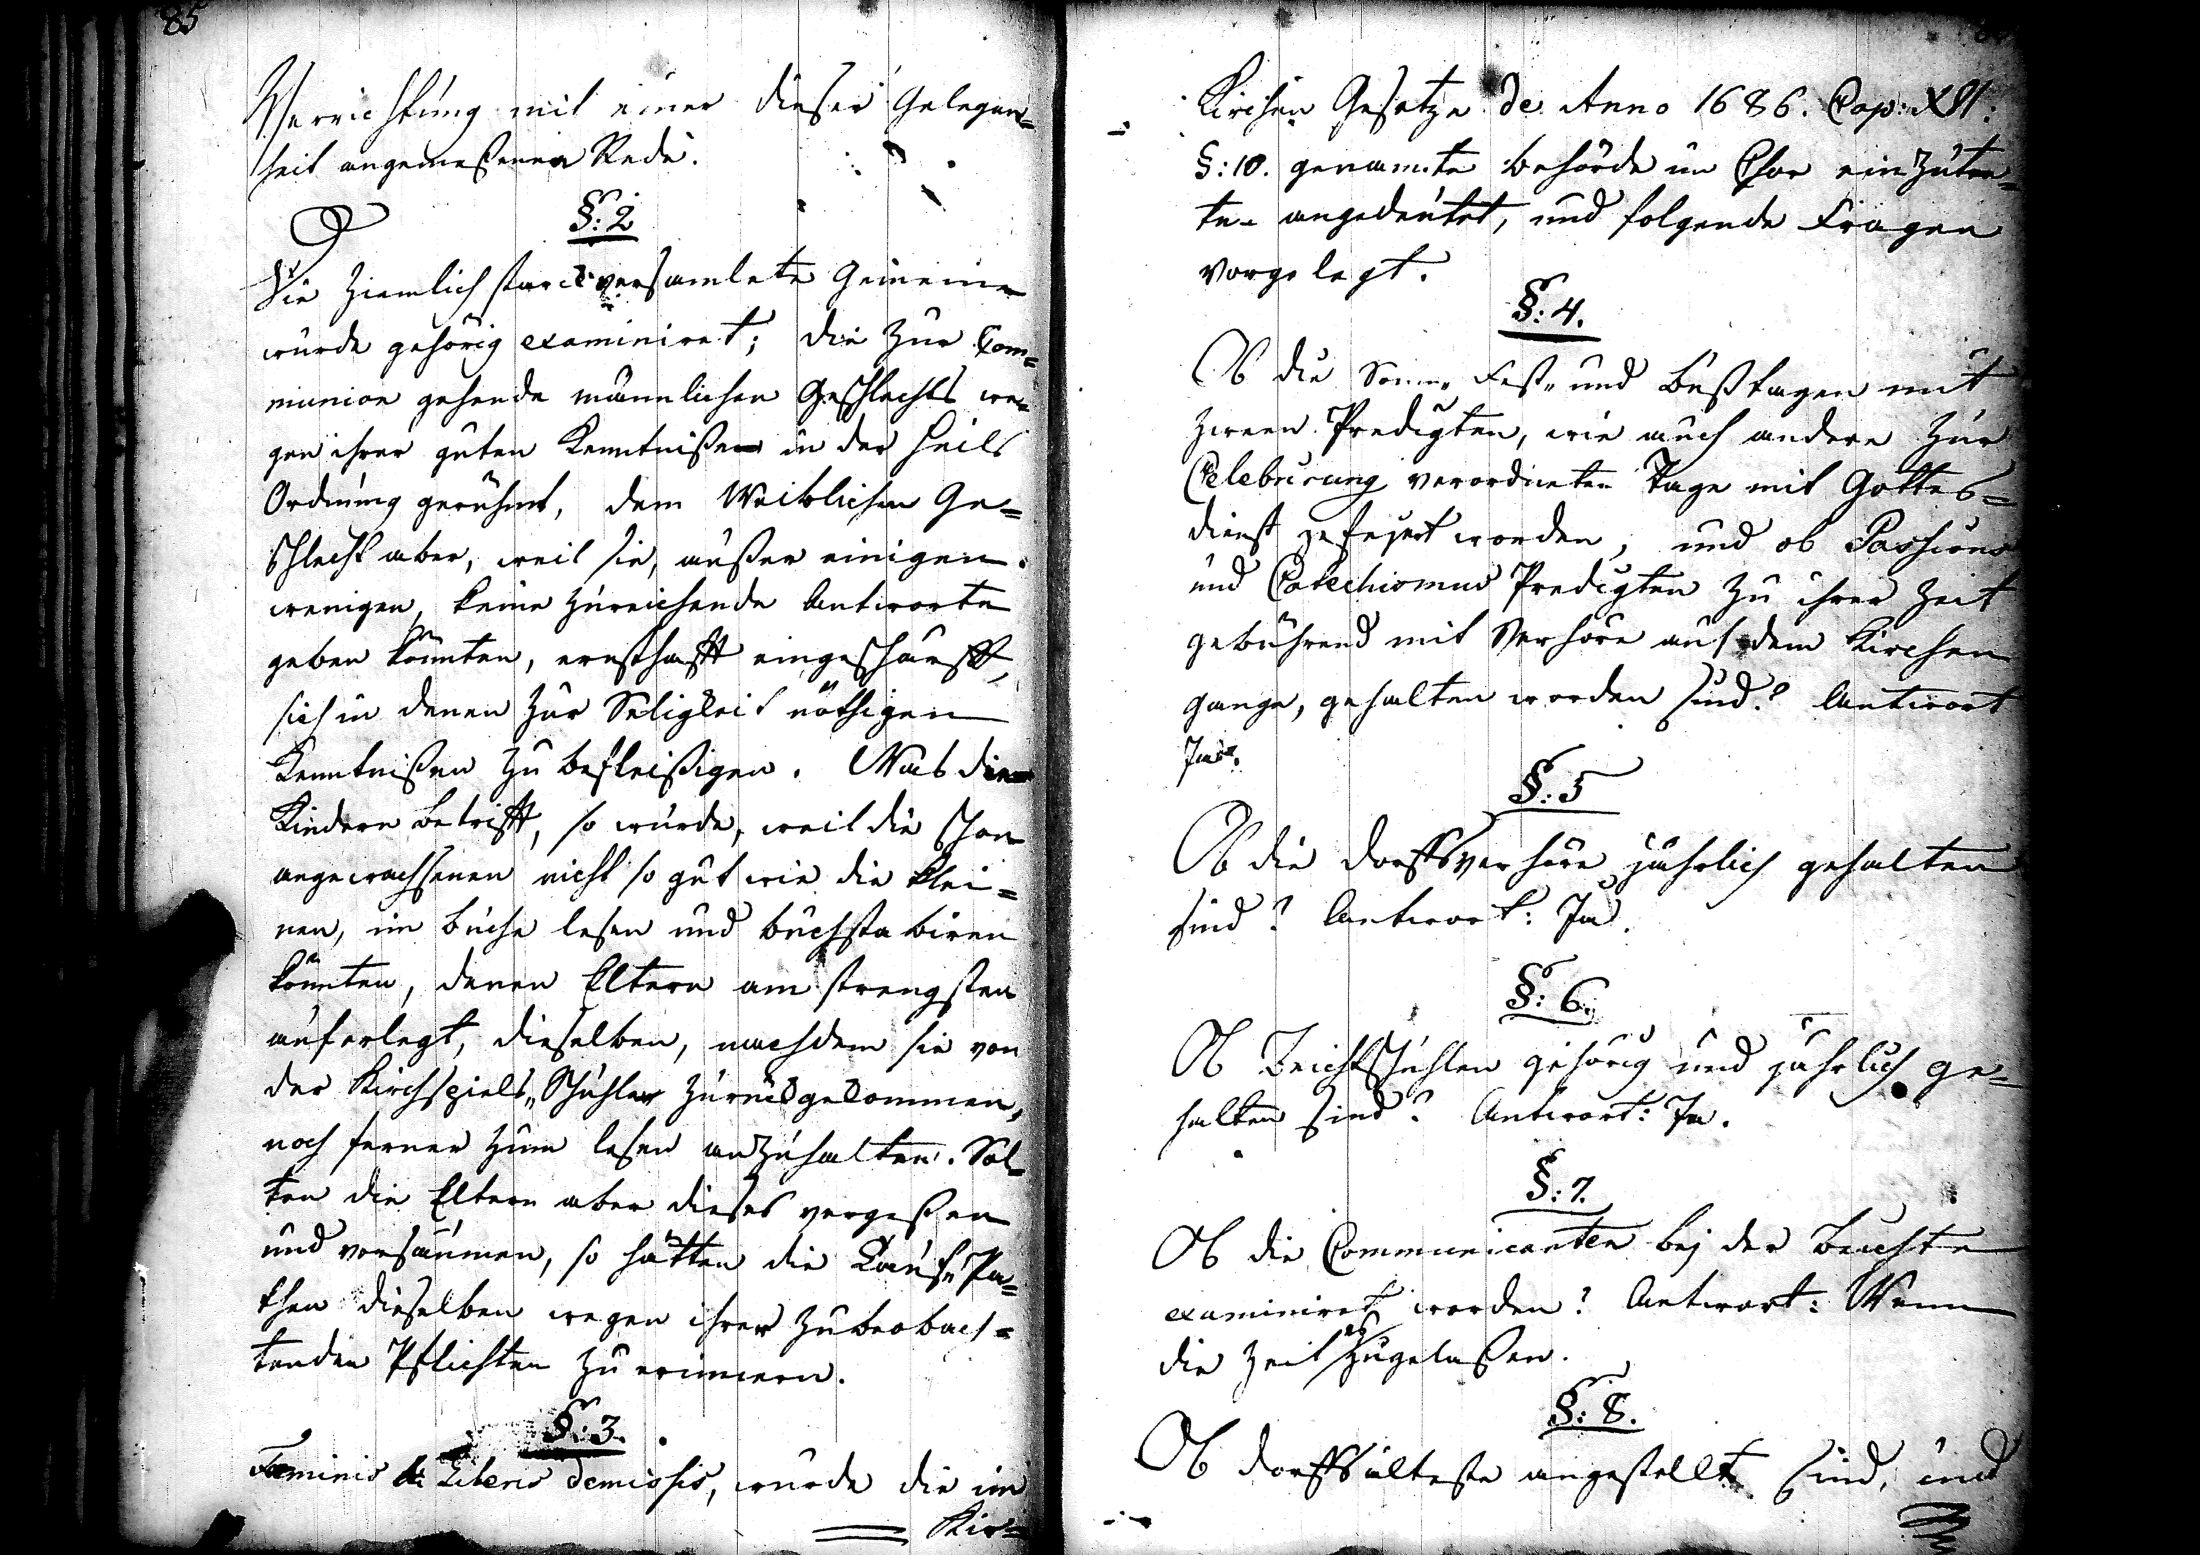 85
Verrichtung mit einer dieser Gelegen=
heit angemeßenen Rede.
§: 2
Die ziemlich starck versamlete Gemeine
wurde gehörig examiniret; die zur Com=
munion gehende männlichen Geschlechts we=
gen ihrer guten Kenntnißen in der Heils
Ordnung gerühmt, dem Weiblichen Ge=
schlecht aber, weil sie, außer einigen
wenigen, keine zureichende Antworte
geben könnten, ernsthafft eingeschärfft,
sich in denen zur Seligkeit nöthigen
Kenntnißen zu befleißigen. Was die
Kindern betrifft, so wurde, weil die schon
angewachsenen nicht so gut wie die klei=
nen, im Buche lesen und buchstabiren
könnten, denen Eltern am strengsten
auferlegt, dieselben, nachdem sie von
der Kirchspiels„Schuhler zurückgekommen,
noch ferner zum lesen anzuhalten. Sol=
ten die Eltern aber dieses vergeßen
und versäumen, so hätten die Tauf„Pa=
then dieselben wegen ihrer zubeobach=
tenden Pflichten zu erinnern.
§: 3.
Foeminis & Liberis demissis, wurde die im
Kir=
Kirchen Gesetze de Anno 1686. Cap: XVI:
§: 10. genannte Behörde im Chor einzutre=
ten angedeutet, und folgende Fragen
vorgelegt.
§: 4.
Ob die Sonn„ Fest„ und Bußtagen mit
zween Predigten, wie auch andere zur
Celebrirung verordneten Tage mit Gottes=
dienst gefeyert worden, und ob Passions
und Catechismus Predigten zu ihrer Zeit
gebührend mit Verhöre auf dem Kirchen
gange, gehalten worden sind? Antwort
Ja.
§: 5
Ob die Dorffsverhöre jährlich gehalten
sind? Antwort: Ja.
§: 6.
Ob Beichtschuhlen gehörig und jährlich ge=
halten sind? Antwort: Ja.
§: 7.
Ob die Communicanten bej der Beichte
examiniret worden? Antwort: Wenn
die Zeit es zugelaßen.
§: 8.
Ob Dorffsälteste angestellt sind, und